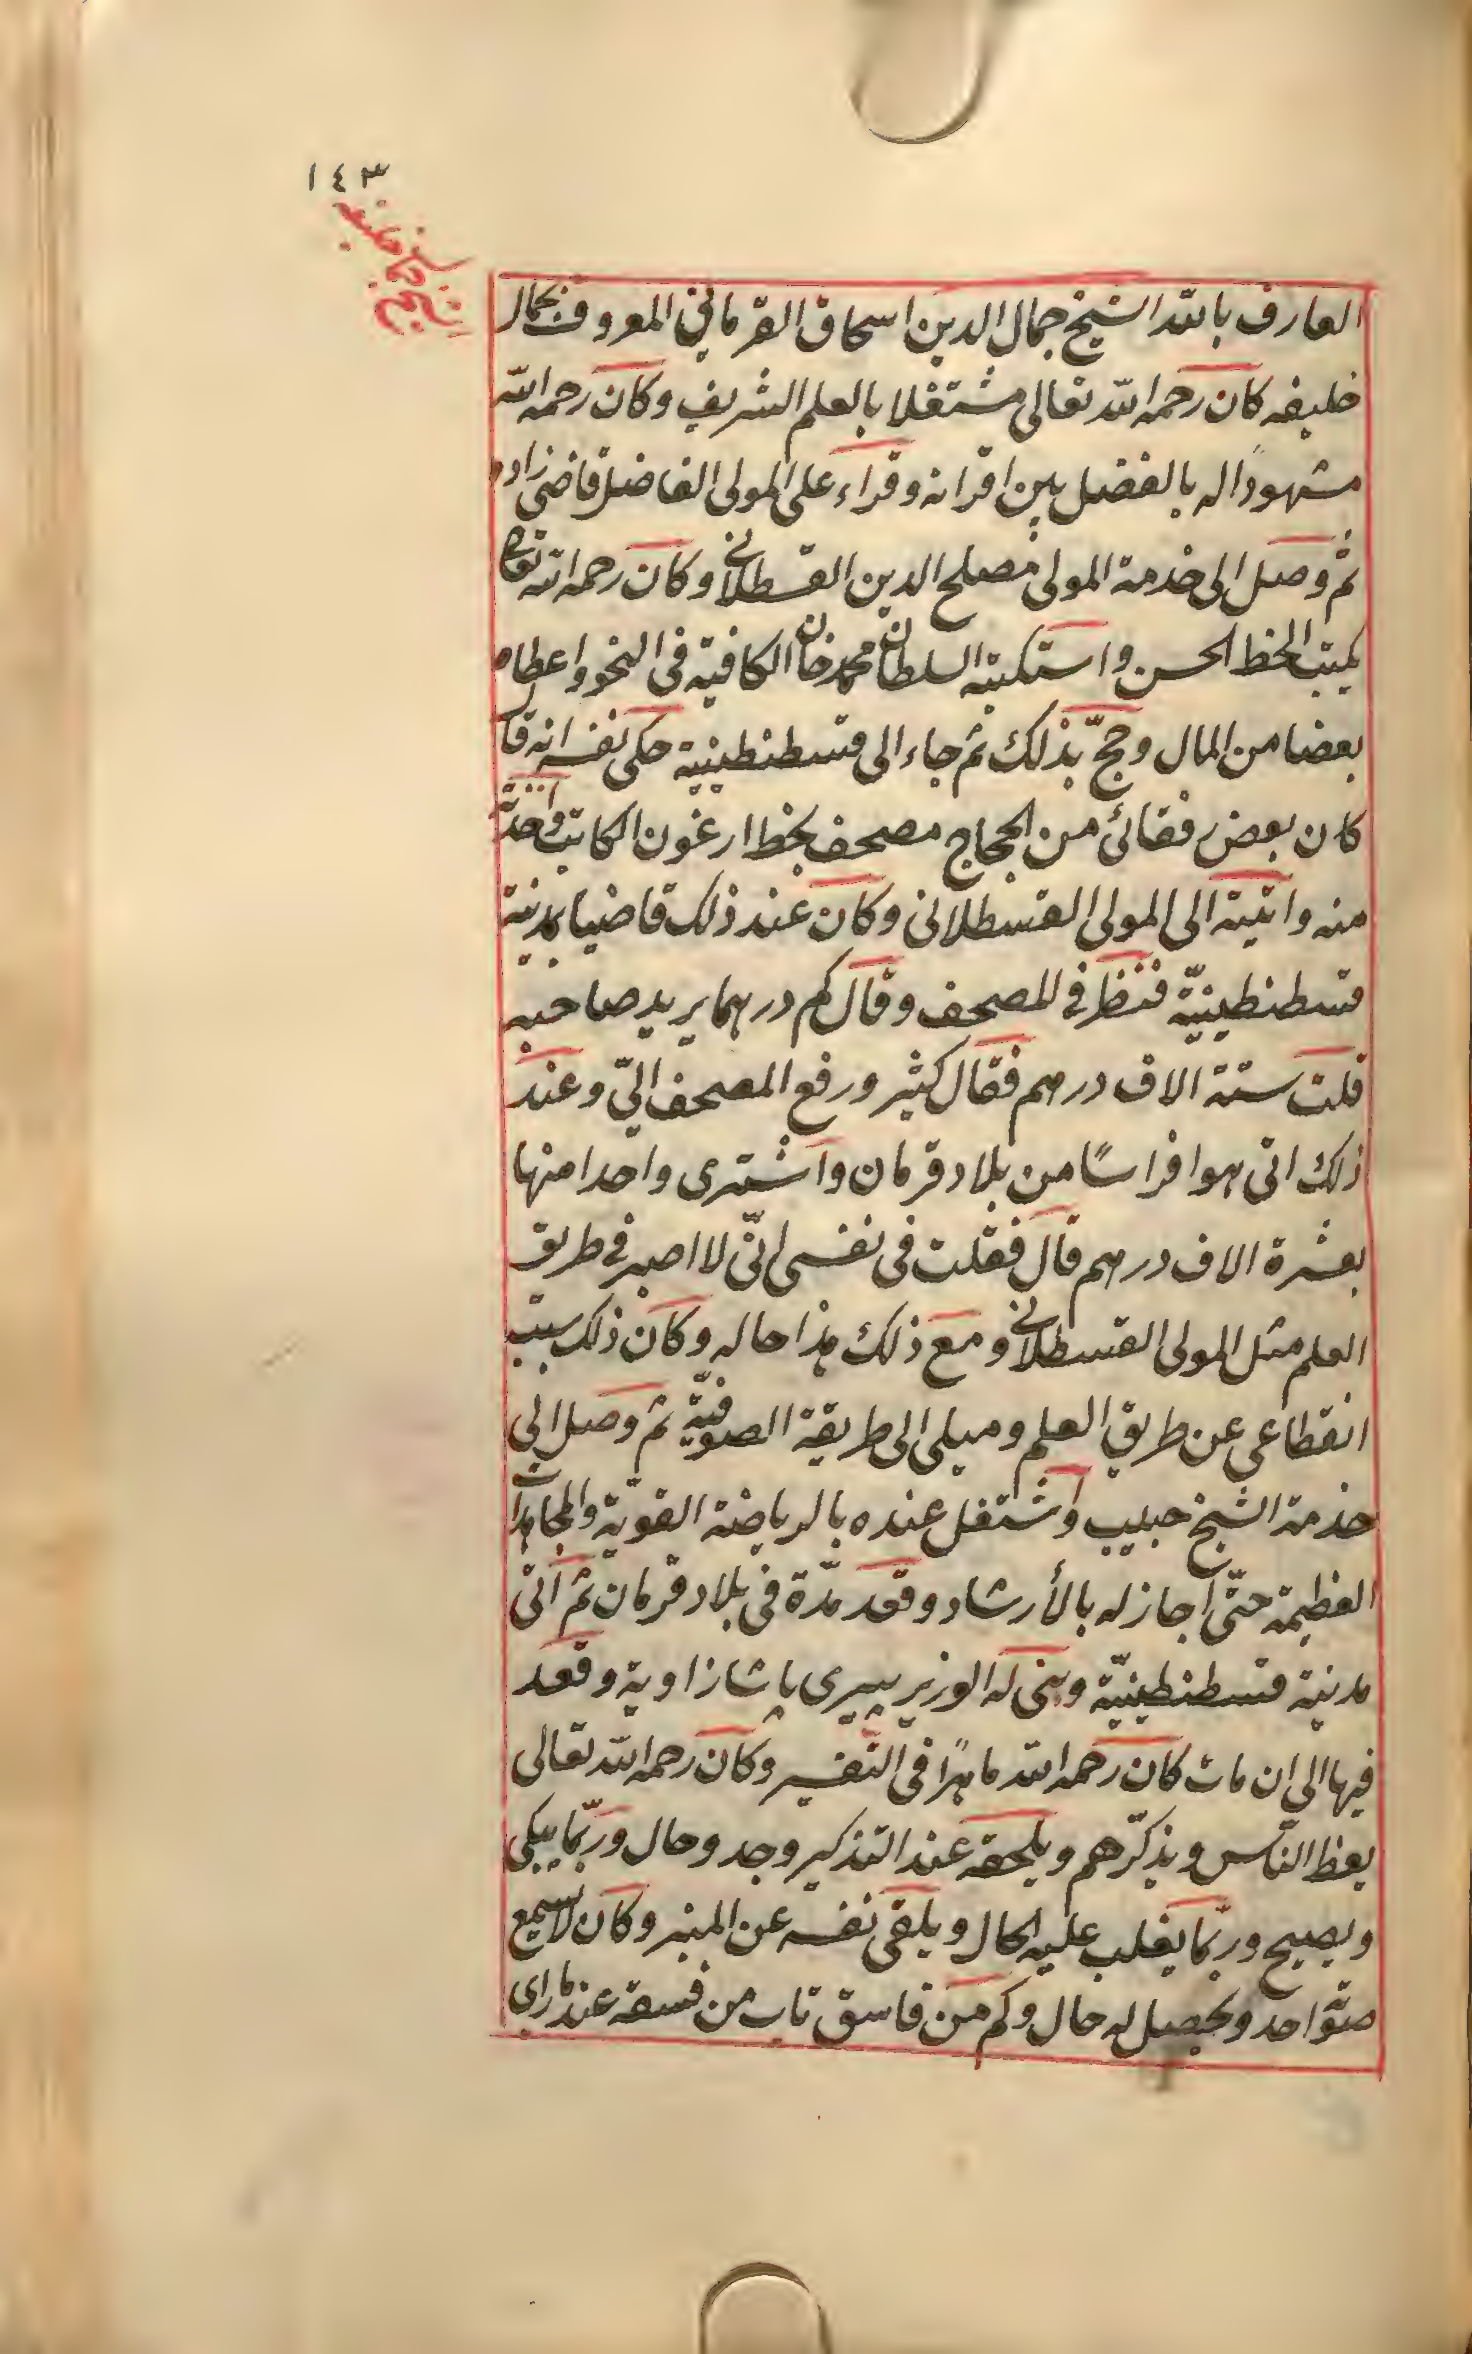 ١٤٣
الشيخ جمال خليفه
العارف بالله الشيخ جمال الدين اسحاق القرماني المعروف بجمال
خليفه كان رحمه الله تعالى مشتغلا بالعلم الشريف وكان رحمه الله
مشهودًا له بالفضل بين اقرانه وقراء على المولى الفاضل قاضى زاده
ثم وصل الى خدمة المولى مصلح الدين القسطلاني وكان رحمه الله تعالى
يكتب الخط الحسن واستكتبه السلطان محمد خان الكافية فى النحو واعطاه
بعضا من المال وحجّ بذلك ثم جاء الى قسطنطينية حكى نفسه انه قال
كان بعض رفقائى من الحجاج مصحف بخط ارغون الكاتب واخذته
منه واتيته الى المولى القسطلانى وكان عند ذلك قاضيا بمدينة
قسطنطينيّة فنظر فى المصحف وقال كم درهما يريد صاحبه
قلت ستة الاف درهم فقال كثير ورفع المصحف الىّ وعند
ذلك اتى هو افراسًا من بلاد قرمان واشترى واحدا منها
بعشرة الاف درهم قال فقلت فى نفسى انّى لا اصير فى طريق
العلم مثل المولى القسطلانى ومع ذلك هذا حاله وكان ذلك سبب
انقطاعى عن طريق العلم وميلى الى طريقة الصوفيّة ثم وصل الى
خدمة الشيخ حبيب واشتغل عنده بالرياضة القويّة والمجاهدات
العظيمة حتّى اجاز له بالأرشاد وقعد مدّة فى بلاد قرمان ثم اتى
مدينة قسطنطينيّة وبنى له الوزير پيرى پاشا زاوية وقعد
فيها الى ان مات كان رحمه الله ماهرًا فى التفسير وكان رحمه الله تعالى
يعظ النّاس ويذكّرهم ويلحقه عند التذكير وجد وحال وربّما يبكى
ويصيح وربّما يغلب عليه الحال ويلقى نفسه عن المنبر وكان لا يسمع
صوته احد ويحصل له حال وكم من فاسق تاب من فسقه عند ما راى